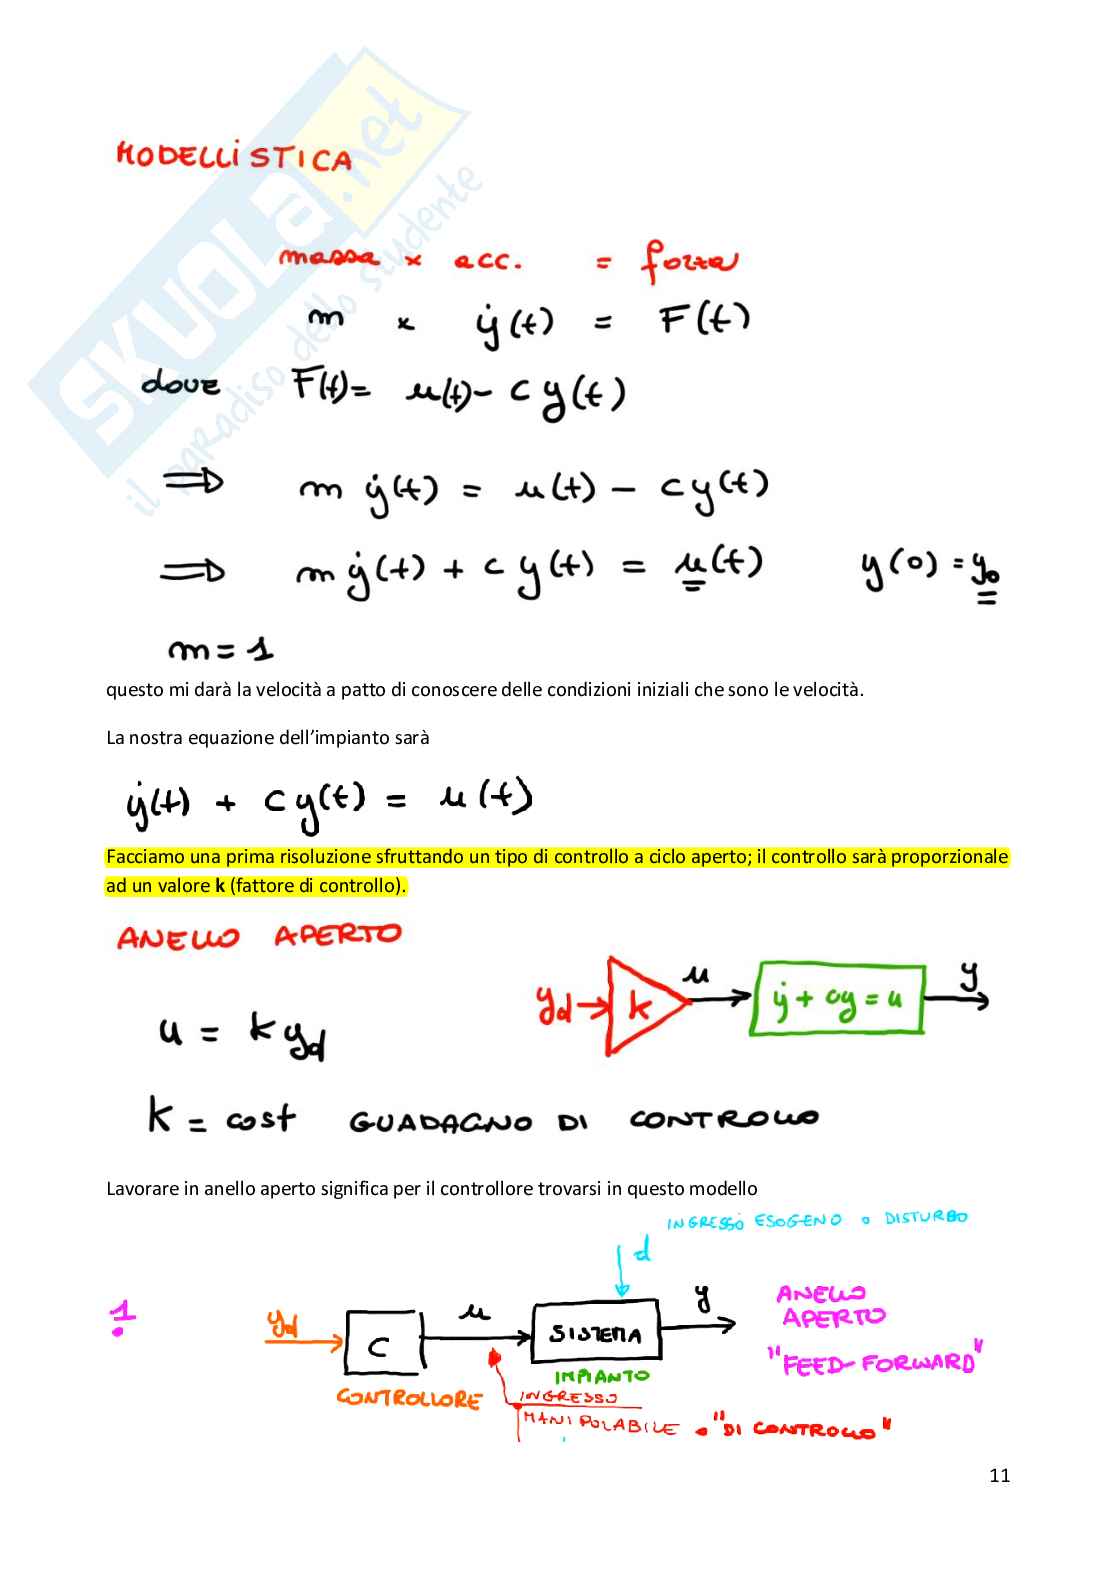 SKUOLA.net
il paradiso dello studente
MODELLISTICA
massa × acc. = forza
m × ẏ(t) = F(t)
dove F(t)= u(t)- c y(t)
⇒ m ẏ(t) = u(t) - c y(t)
⇒ m ẏ(t) + c y(t) = u(t) y(0) = y₀
m = 1
questo mi darà la velocità a patto di conoscere delle condizioni iniziali che sono le velocità.
La nostra equazione dell’impianto sarà
ẏ(t) + c y(t) = u(t)
Facciamo una prima risoluzione sfruttando un tipo di controllo a ciclo aperto; il controllo sarà proporzionale
ad un valore k (fattore di controllo).
ANELLO APERTO
yd → k u ẏ + cy = u y
u = k yd
k = cost GUADAGNO DI CONTROLLO
Lavorare in anello aperto significa per il controllore trovarsi in questo modello
INGRESSO ESOGENO o DISTURBO
d
1
yd C u SISTEMA y
ANELLO
APERTO
"FEED-FORWARD"
CONTROLLORE
IMPIANTO
INGRESSO
MANIPOLABILE o "DI CONTROLLO"
11